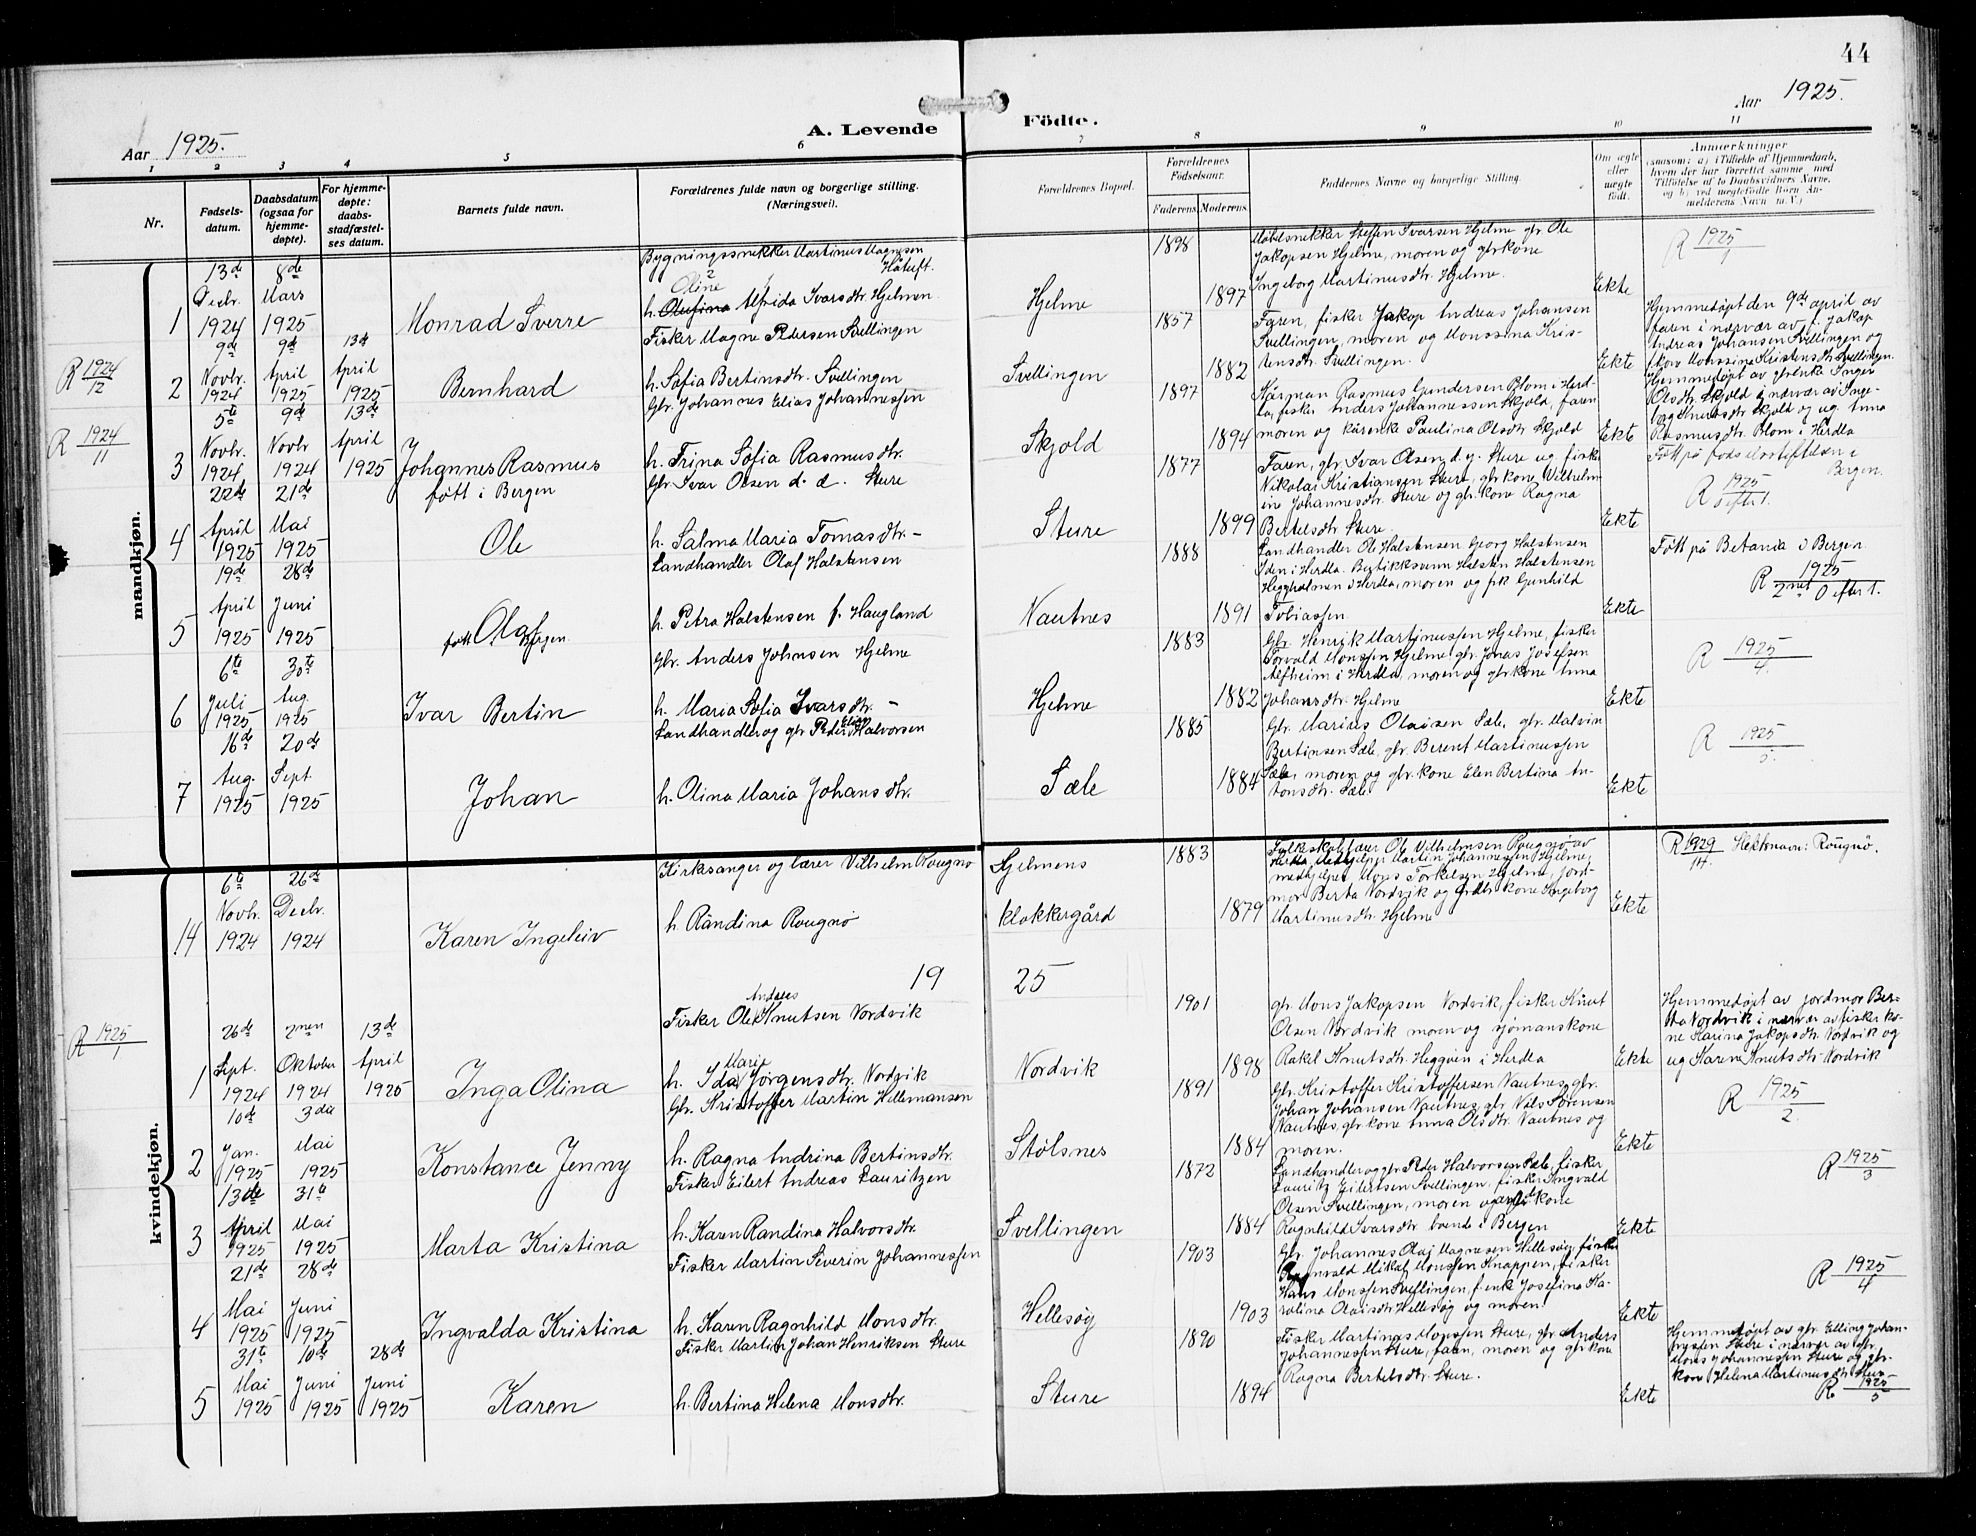 44
Aar 1925.
A. Levende
Födte.
Aar 1925.
1 2 3 4 5 6 7 8 9 10 11
Nr.
Fødsels-
datum.
Daabsdatum
(ogsaa for
hjemme-
døpte).
For hjemme-
døpte:
daabs-
stadfæstel-
ses datum.
Barnets fulde navn.
Forældrenes fulde navn og borgerlige stilling.
(Næringsvei).
Forældrenes Bopæl.
Forældrenes
Fødselsaar.
Faderens. Moderens.
Faddernes Navne og borgerlige Stilling.
Om ægte
eller
uægte
født.
Anmærkninger
(saasom: a) i Tilfælde af Hjemmedaab,
hvem der har forrettet samme med
Tilføielse af to Daabsvidners Navne,
og b) ved uegtefødte Børn An-
melderens Navn m.V.)
mandkjøn.
1
13de Decbr. 1924
8de Mars 1925
Monrad Sverre
Bygningssnekker Martinus Magnesen
Håtuft.
Oline
h. Olufina Alfrida Ivarsdtr. Hjelmen
Hjelme
1898
1897
Møbelsnekker Steffen Ivarsen Hjelme gbr. Ole
Jakopsen Hjelme, moren og gbrkone
Ingeborg Martinusdtr. Hjelme.
Ekte
R 1925/1
R 1924/12
2
9de Novbr. 1924
9de April 1925
13de April 1925
Bernhard
Fisker Magne Pedersen Svellingen
h. Sofia Bertinsdtr. Svellingen
Svellingen
1857
1882
Faren, fisker Jakop Andreas Johansen
Svellingen, moren og Monssina Kris-
tensdtr. Svellingen.
Ekte
Hjemmedøpt den 9de april av
faren i nærvær av fi. Jakop
Andreas Johansen Svellingen og
fkone Monssine Kristensdtr. Svellingen.
R 1924/11
3
5te Novbr. 1924
9de Novbr 1924
13de April 1925
Johannes Rasmus
født i Bergen
Gbr. Johannes Elias Johannessen
h. Trina Sofia Rasmusdtr.
Skjold
1897
1894
Kårman Rasmus Gundersen Blom i Herd-
la, fisker Anders Johannessen Skjold, faren
moren og kårenke Paulina Olsdtr Skjold
Ekte
Hjemmedøpt av gbrenke Inger
Olsdtr. Skjold i nærvær av Inge-
borg Knutsdtr Skjold og ug. Anna
Rasmusdtr. Blom i Herdla
Født på Fødselsstiftelsen i
Bergen.
4
22de April 1925
21de Mai 1925
Ole
Gbr. Ivar Olsen d. y. Sture
h. Salma Maria Tomasdtr. -
Sture
1877
1899
Faren, gbr. Ivar Olsen d. y. Sture ug. fisker
Nikolai Kristiansen Sture, gbrkone Vilhelm
ine Johannesdtr. Sture og gbr.kone Ragna
Bertelsdtr Sture.
Ekte
R 1925/0 eftr 1.
5
19de April 1925
28de Juni 1925
Olaf
født Bergen
Landhandler Olaf Halstensen
h. Petra Halstensen f. Haugland
Nautnes
1888
1891
Landhandler Ole Halstensen Georg Halstensen
Iden i Herdla. Butikksvenn Halsten Halstensen
Heggholmen i Herdla, moren og frk Gunhild
Tobiassen.
Ekte
Født på Betania i Bergen.
R 1925/2net 0 efter 1.
6
6te Juli 1925
30te Aug 1925
Ivar Bertin
Gbr. Anders Johnsen Hjelme
h. Maria Sofia Ivarsdtr. -
Hjelme
1883
1882
Gbr. Henrik Martinussen Hjelme, fisker
Torvald Monssen Hjelme, gbr. Jonas Josefsen
Alfheim i Herdla, moren og gbrkone Anna
Johansdtr. Hjelme
Ekte
R 1925/4.
7
16de Aug. 1925
20de Sept. 1925
Johan
Landhandler og gbr Peder Elias Halvorsen
h. Olina Maria Johansdtr.
Sæle
1885
1884
Gbr. Marius Olaisen Sæle, gbr. Malvin
Bertinsen Sæle, gbr. Berent Martinussen
Sæle, moren og gbr.kone Elen Bertina An-
tonsdtr. Sæle
Ekte
R 1925/5.
kvindekjøn.
14
6te Novbr. 1924
26de Decbr. 1924
Karen Ingeleiv
Kirkesanger og lærer Vilhelm Rougnø
h. Rändina Rougnø
Hjelmens
klokkergård
1883
1879
Folkeskolelærer Ole Vilhelmsen Rougnø av
Herdla, Medhjelper Martin Johannessen Hjelme,
medhjelper Mons Torkelsen Hjelme, jord-
mor Berta Nordvik og gbr.kone Ingeborg
Martinusdtr. Hjelme
Ekte
R 1929/14. Slektsnavn: Rougnø.
19 25
R 1925/1
1
26de Sept. 1924
2nen Oktober 1924
13de April 1925
Inga Olina
Fisker Ole Andreas Knutsen Nordvik
h. Ida Marie Jörgensdtr. Nordvik
Nordvik
1901
1898
gbr Mons Jakopsen Nordvik, fisker Knut
Olsen Nordvik moren og sjömanskone
Rakel Knutsdtr. Heggøen i Herdla
Ekte
Hjemmedøpt av jordmor Ber-
ta Nordvik i nærvær av fisker ko-
ne Karina Jakopsdtr. Nordvik og
ug Karen Knutsdtr Nordvik
2
10de Jan. 1925
3die Mai 1925
Konstance Jenny
Gbr. Kristoffer Martin Hillemansen
h. Ragna Andrina Bertinsdtr.
Stølsnes
1891
1884
Gbr. Kristoffer Kristoffersen Nautnes, gbr.
Johan Johansen Nautnes, gbr Nils Sørensen
Nautnes, gbr.kone Anna Olsdtr. Nautnes og
moren.
Ekte
R 1925/2.
3
13de April 1925
31te Mai 1925
Marta Kristina
Fisker Eilert Andreas Lauritzen
h. Karen Randina Halvorsdtr.
Svellingen
1872
1884
Landhandler og gbr Peder Halvorsen Sæle, fisker
Lauritz Eilertsen Svellingen, fisker Ingvald
Olsen Svellingen, moren og kone
Ragnhild Ivarsdtr boende i Bergen
Ekte
R 1925/3
4
21de Mai 1925
28de Juni 1925
Ingvalda Kristina
Fisker Martin Severin Johannessen
h. Karen Ragnhild Monsdtr.
Hellesøy
1903
1903
Gbr. Johannes Olai Magnesen Hellesøy, fisker
Ragnvald Mikal Monssen Knappen, fisker
Hans Monssen Svellingen, f.enk Josefina Ka-
rolina Olaisdtr Hellesøy og moren.
Ekte
R 1925/4
5
31te Mai 1925
10de Juni 1925
28de Juni 1925
Karen
Fisker Martin Johan Henriksen Sture
h. Bertina Helena Monsdtr.
Sture
1890
1894
Fisker Martines Monssen Sture, gbr. Anders
Johannessen Sture, faren, moren og gbrkone
Ragna Bertelsdtr. Sture.
Ekte
Hjemmedøpt av gbr. Elling Johan-
nessen Sture i nærvær av gbr.
Mons Johannessen Sture og gbr.
kone Helena Martinusdtr. Sture
R 1925/5